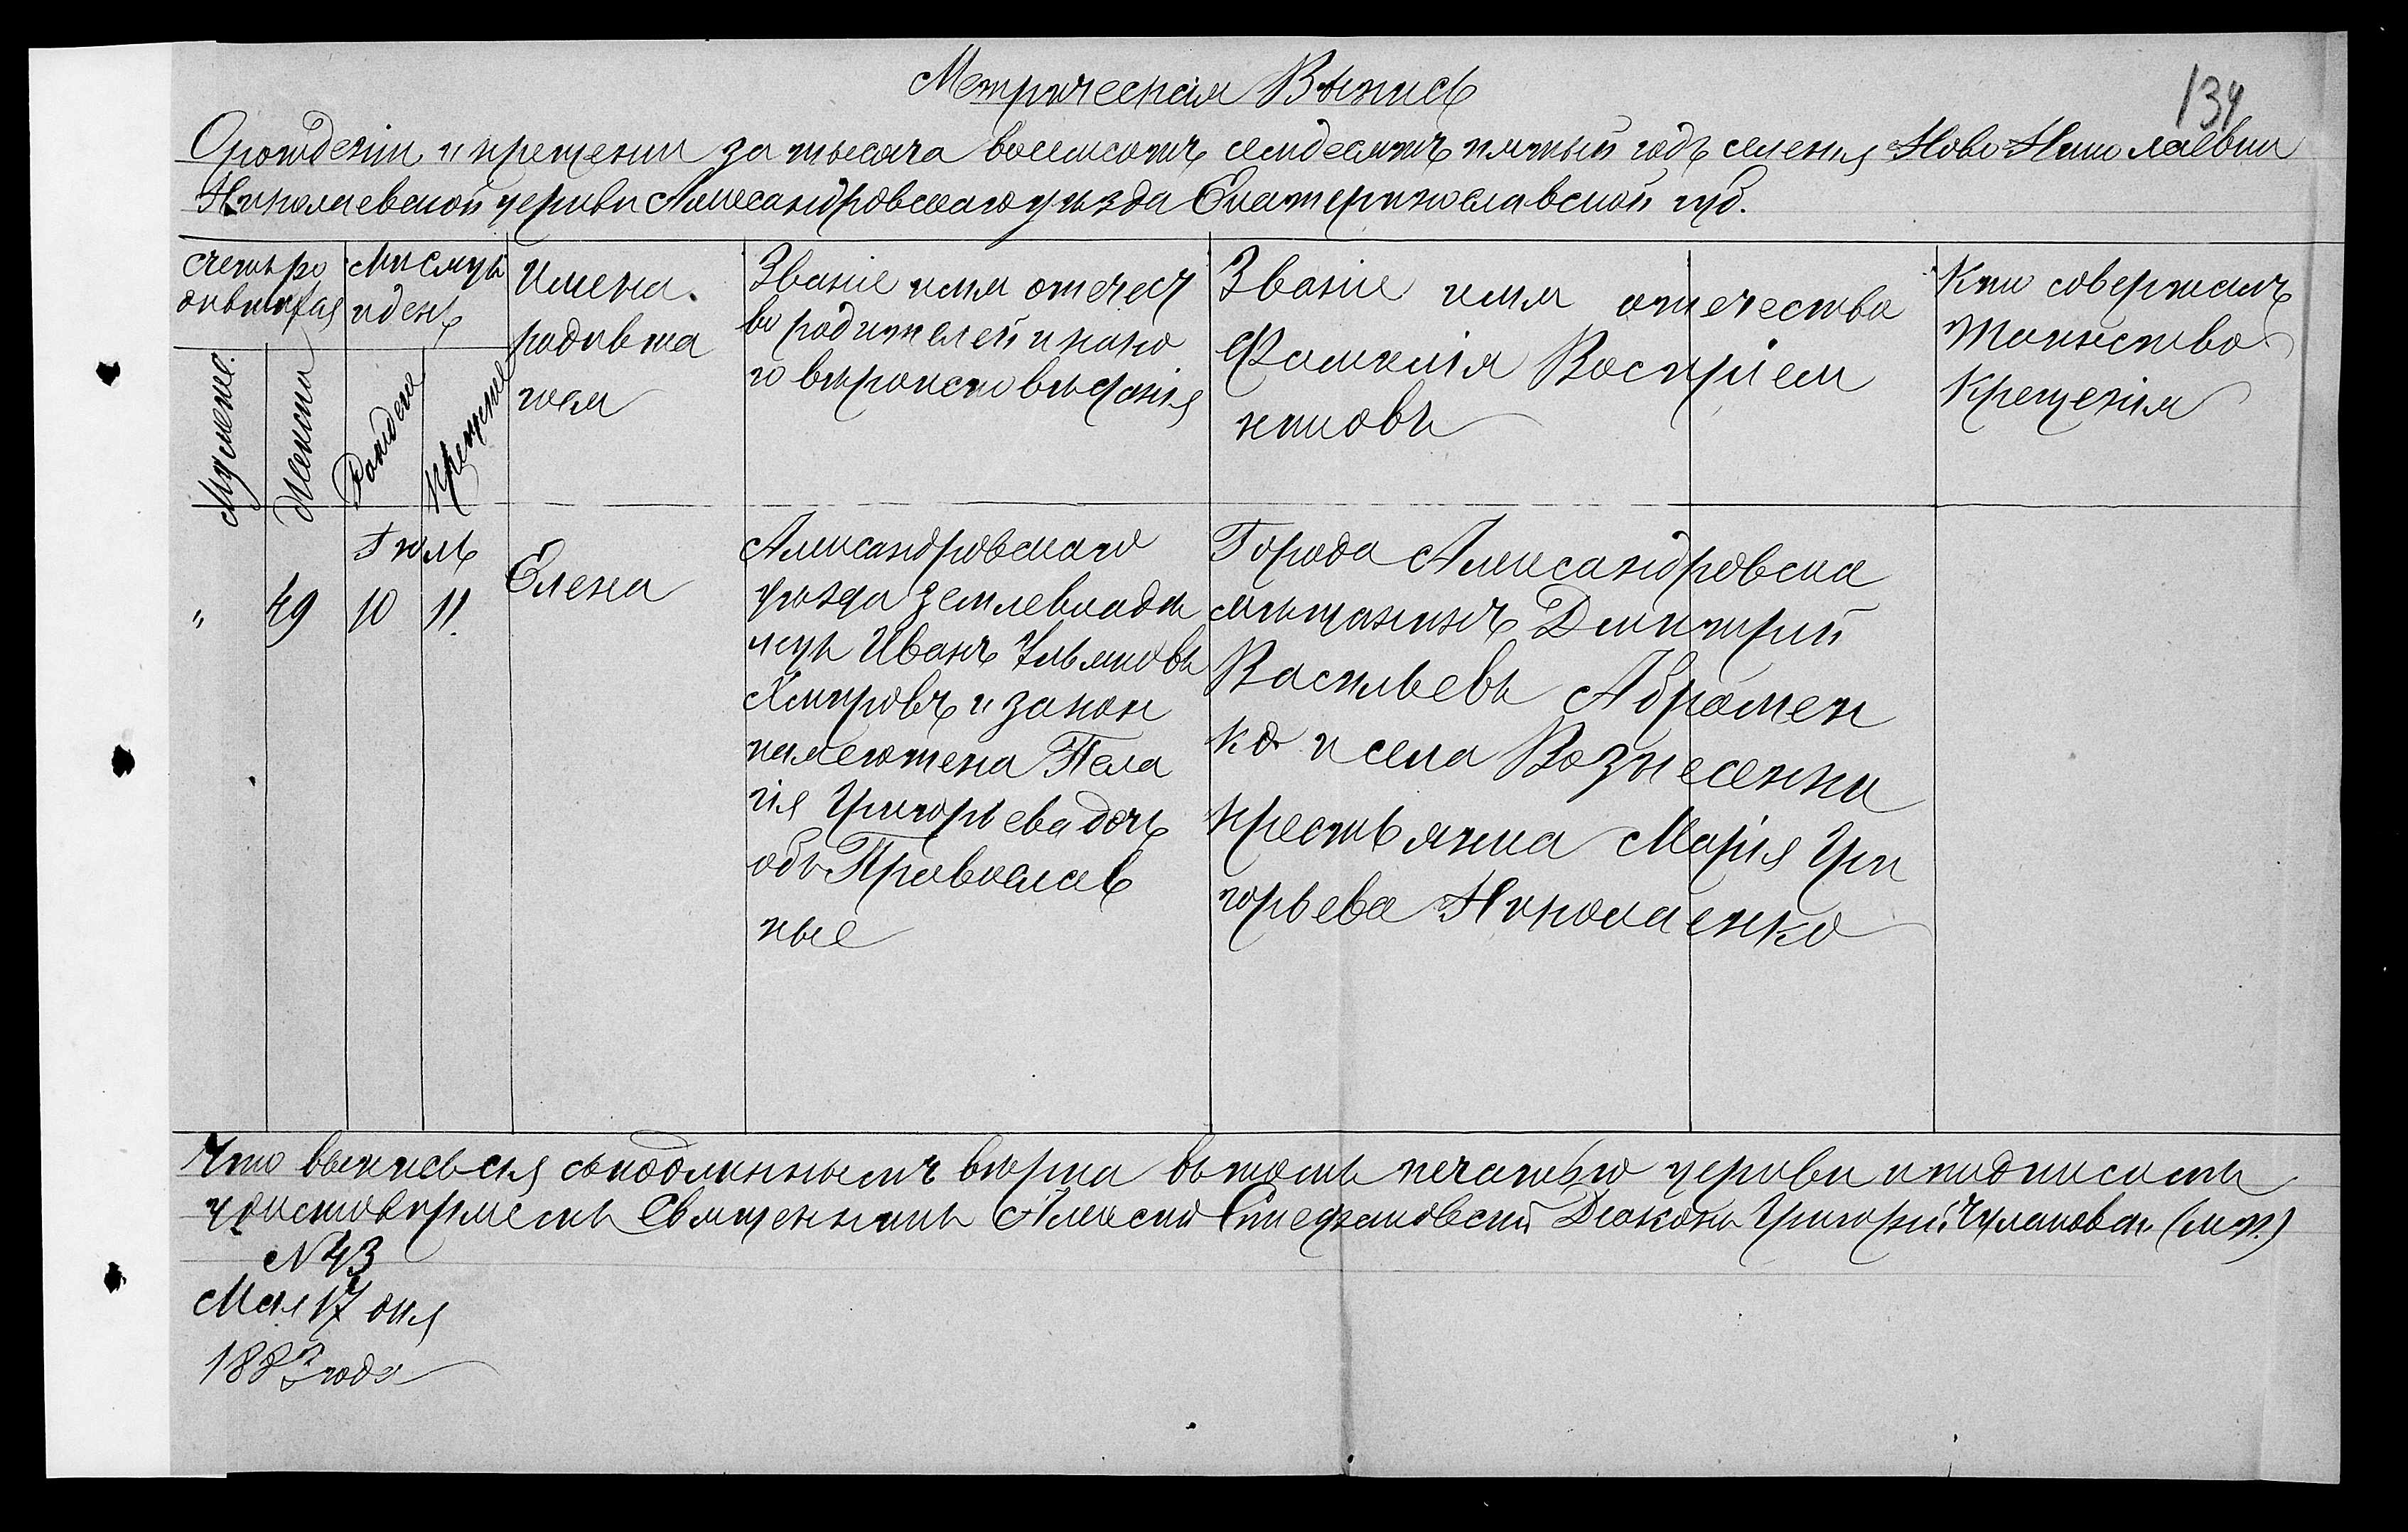 Метрическая Выпись
134
О рождении и крещении за тысяча восемсотъ семдесятъ пятый годъ селения Ново Николаевки
Николаевской церкви Александровскаго уѣзда Екатеринославской губ.
Счетъ ро
дившихся
Мужеска.
Женска
Мѣсяцъ
и день
Рождения
Крещения
Имена
родивша
гося
Званіе имя отечест
во родителей и како
го вѣроисповѣданія
Званіе имя отечество
Фамилія Воспріем
никовъ
Кто совершалъ
Таинство
Крещенія
"
49
Іюль
10
11.
Елена
Александровскаго
уѣзда землевладѣ
лецъ Иванъ Ульяновъ
Хмыровъ и закон
ная его жена Пела
гія Григорьева дочь
оба Православ
ные
Города Александровска
мѣщанинъ Димитрий
Васильевъ Абрамен
ко и села Вознесенки
крестьянка Марія Гри
горьева Николаенко
Что выпись сія съ подлиннымъ вѣрна въ томъ печатью церкви и подписомъ
удостовѣряемъ Священникъ Алексей Стефановский Диаконъ Григорий (м.п.)
N 43
Мая 17 дня
1883 года